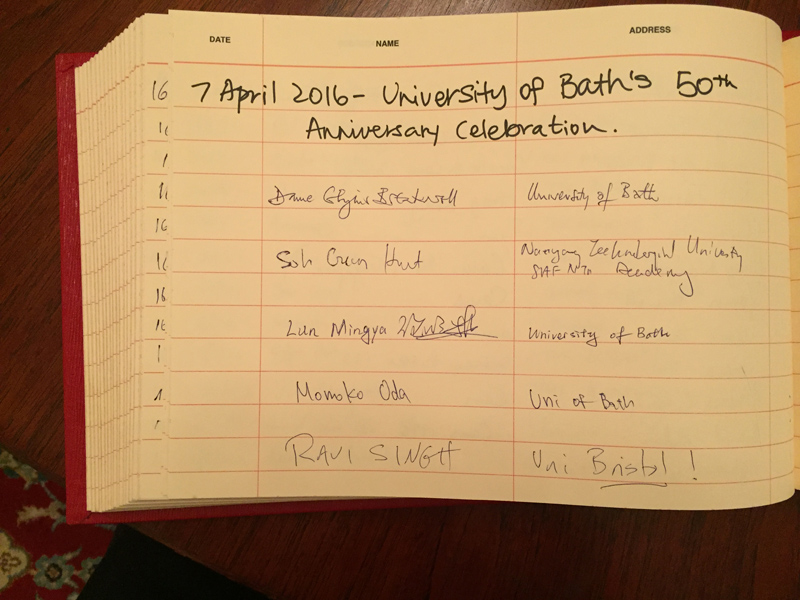 DATE NAME ADDRESS
16 7 April 2016 - University of Bath's 50th
Anniversary Celebration.
Dame Glynis Breakwell University of Bath
16
Soh Guan Huat Nanyang Technological University
Academy
16
16 Lun Mingya University of Bath
Momoko Oda Uni of Bath
RAVI SINGH Uni Bristol!